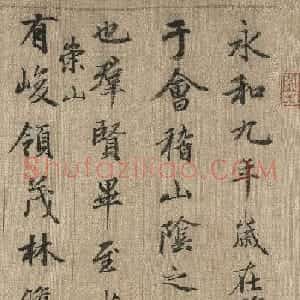 永和九年歲在
于會稽山陰之
也羣賢畢至
崇山
有峻領茂林脩
Shufaziliao.com